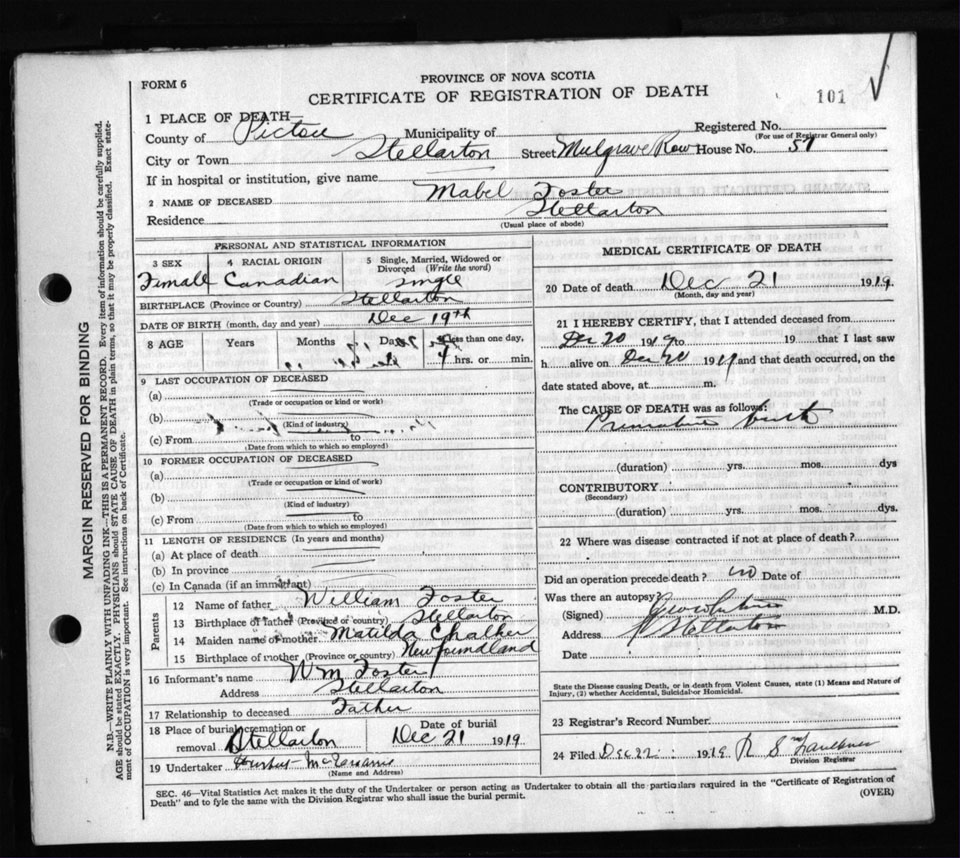 FORM 6
PROVINCE OF NOVA SCOTIA
CERTIFICATE OF REGISTRATION OF DEATH
101
1 PLACE OF DEATH—
County of Pictou Municipality of Registered No.
(For use of Registrar General only)
City or Town Stellarton Street Mulgrave Row House No. 57
If in hospital or institution, give name
2 NAME OF DECEASED Mabel Foster
Residence Stellarton
(Usual place of abode)
PERSONAL AND STATISTICAL INFORMATION
3 SEX 4 RACIAL ORIGIN 5 Single, Married, Widowed or Divorced (Write the word)
Female Canadian Single
BIRTHPLACE (Province or Country) Stellarton
DATE OF BIRTH (month, day and year) Dec 19th
8 AGE Years Months Days If less than one day,
hrs. or min.
9 LAST OCCUPATION OF DECEASED
(a)
(Trade or occupation or kind or work)
(b)
(Kind of industry)
(c) From to
(Date from which to which so employed)
10 FORMER OCCUPATION OF DECEASED
(a)
(Trade or occupation or kind of work)
(b)
(Kind of industry)
(c) From to
(Date from which to which so employed)
11 LENGTH OF RESIDENCE (In years and months)
(a) At place of death
(b) In province
(c) In Canada (if an immigrant)
Parents
12 Name of father William Foster
13 Birthplace of father (Province or country) Stellarton
14 Maiden name of mother Matilda Chalker
15 Birthplace of mother (Province or country) Newfoundland
16 Informant's name Wm Foster
Address Stellarton
17 Relationship to deceased Father
18 Place of burial, cremation or removal Stellarton Date of burial Dec 21 1919
19 Undertaker
(Name and Address)
MEDICAL CERTIFICATE OF DEATH
20 Date of death Dec 21 1919
(Month, day and year)
21 I HEREBY CERTIFY, that I attended deceased from
Dec 20 1919 to 19 that I last saw
h alive on Dec 20 1919 and that death occurred, on the
date stated above, at m.
The CAUSE OF DEATH was as follows:
Premature birth
(duration) yrs. mos. dys
CONTRIBUTORY
(Secondary)
(duration) yrs. mos. dys.
22 Where was disease contracted if not at place of death?
Did an operation precede death? no Date of
Was there an autopsy?
(Signed) M.D.
Address Stellarton
Date
State the Disease causing Death, or in death from Violent Causes, state (1) Means and Nature of
Injury, (2) whether Accidental, Suicidal or Homicidal.
23 Registrar's Record Number
24 Filed Dec 22 1919 R S Faulkner
Division Registrar
SEC. 46—Vital Statistics Act makes it the duty of the Undertaker or person acting as Undertaker to obtain all the particulars required in the "Certificate of Registration of
Death" and to fyle the same with the Division Registrar who shall issue the burial permit.
(OVER)
MARGIN RESERVED FOR BINDING
N.B.—WRITE PLAINLY WITH UNFADING INK—THIS IS A PERMANENT RECORD. Every item of information should be carefully supplied.
AGE should be stated EXACTLY. PHYSICIANS should STATE CAUSE OF DEATH in plain terms, so that it may be properly classified. Exact state-
ment of OCCUPATION is very important. See instructions on back of Certificate.